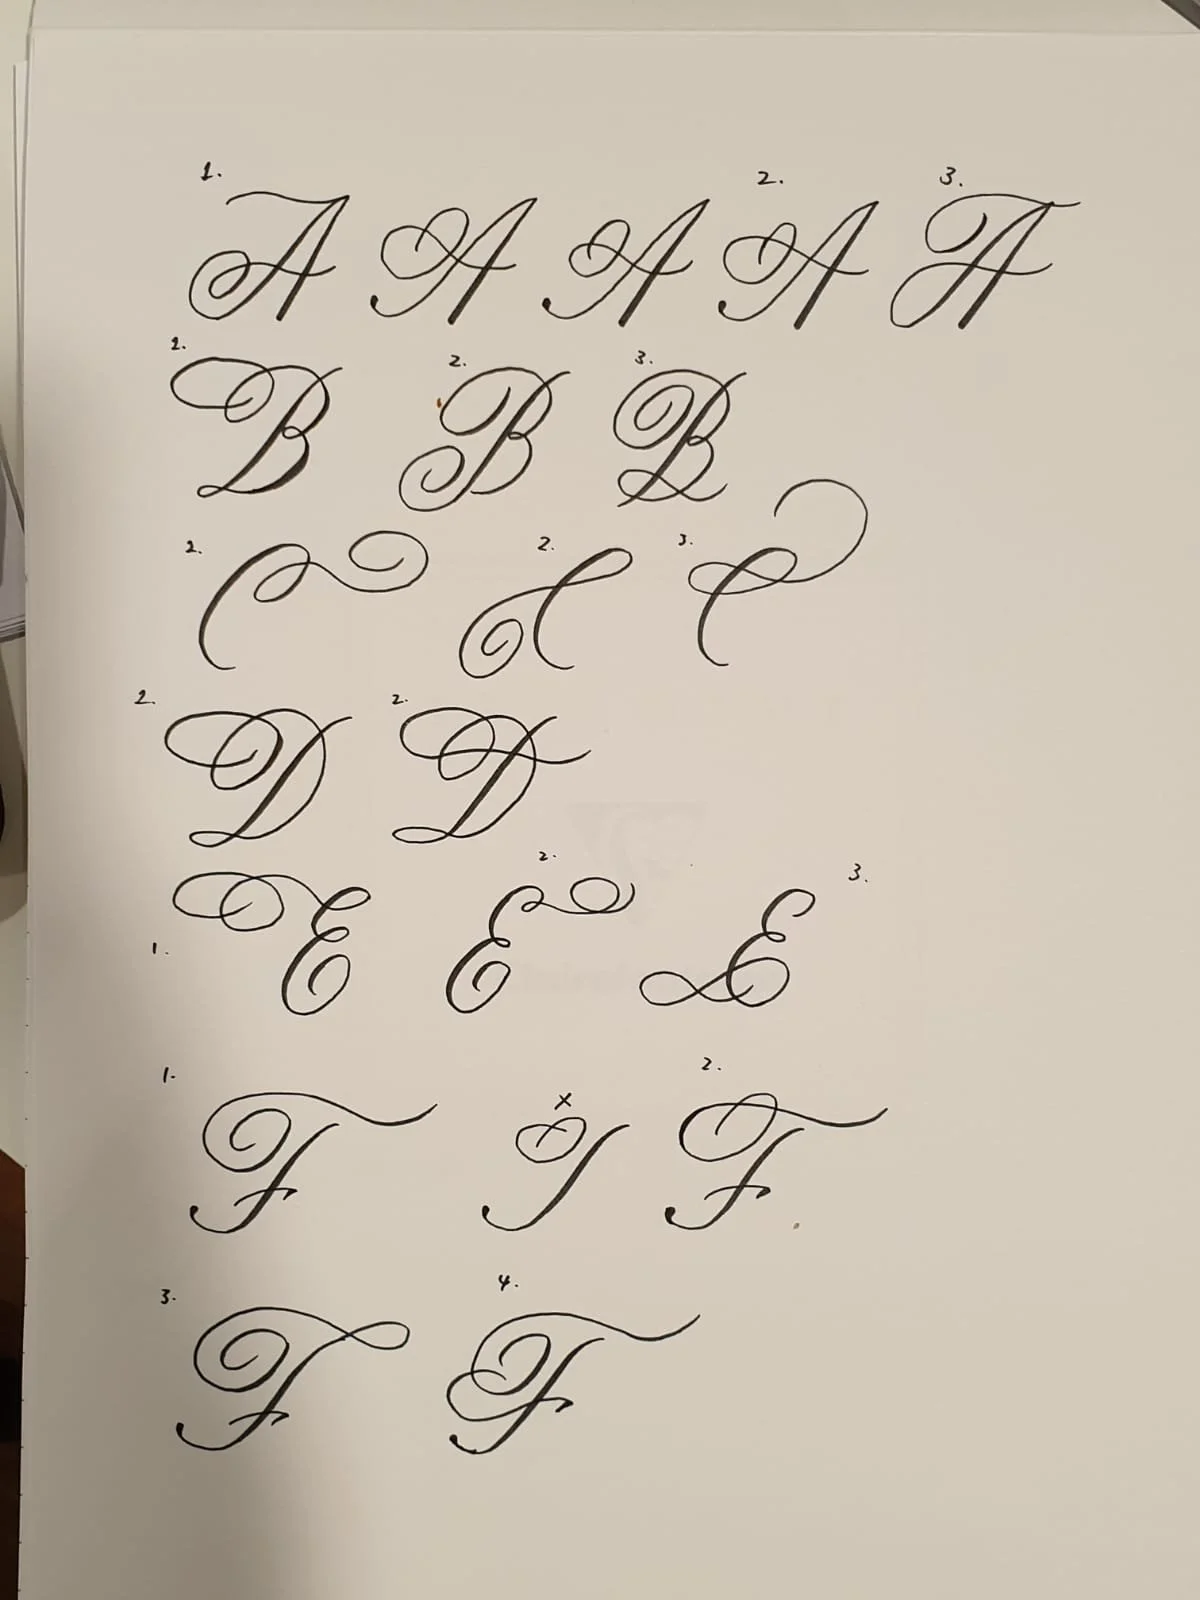 1. 2. 3.
A A A A A
1. 2. 3.
B B B
2. 2. 3.
C C C
2. 2.
D D
2. 3.
E E E
1.
1. x 2.
F F
3. 4.
F F